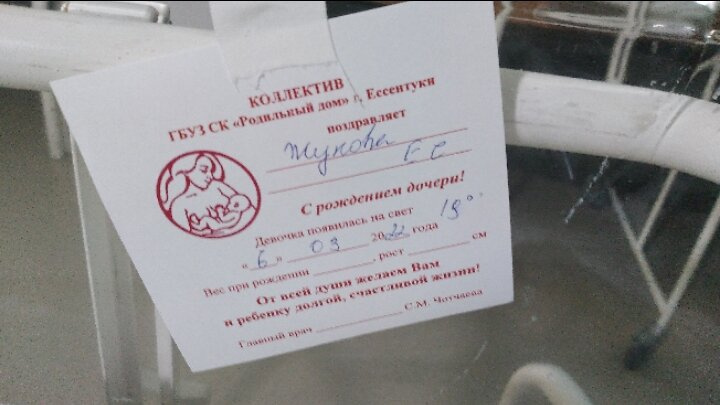 КОЛЛЕКТИВ
ГБУЗ СК «Родильный дом» г. Ессентуки
поздравляет
Жукова
Е С
С рождением дочери!
Девочка появилась на свет 19°°
« 6 » 03 2022 года
Вес при рождении ________, рост ________ см
От всей души желаем Вам
и ребенку долгой, счастливой жизни!
Главный врач ____________ С.М. Чотчаева